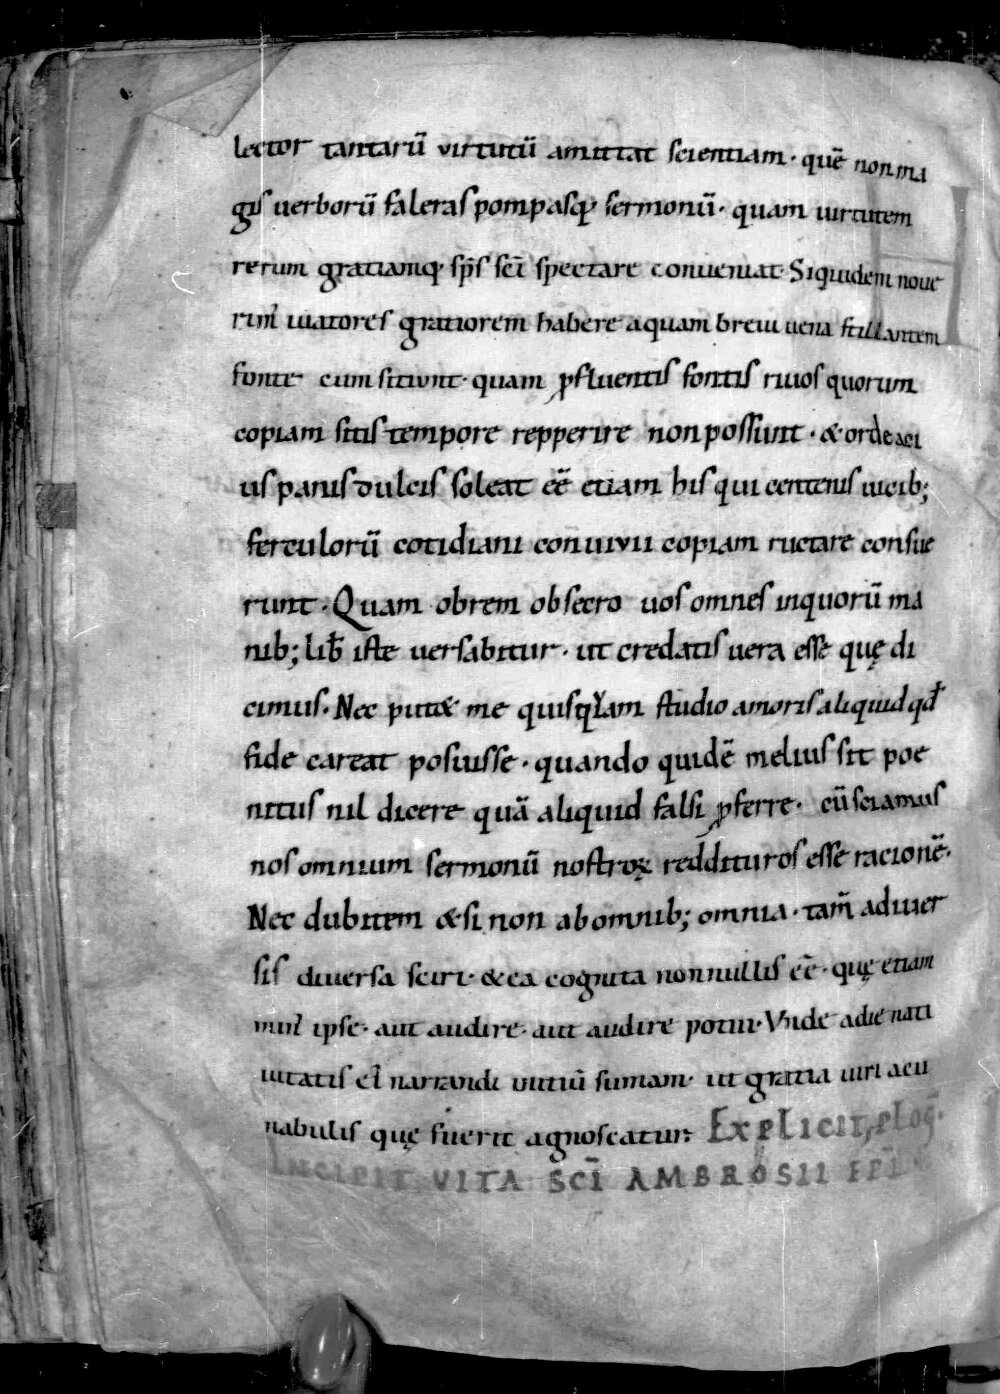 lector tantarū virtutū amittat scientiam · quē non ma
gis uerborū faleras pompasq; sermonū · quam uirtutem
rerum gratiamq; sp̄s sc̄i spectare conueniat · Siquidem noue
rim᷒ uiatores gratiorem habere aquam breui uena stillantem
fonte cum sitiunt · quam ꝓfluentis fontis riuos quorum
copiam sitis tempore repperire non possunt · & ordeaci
us panis dulcis soleat eē etiam his qui centenis uicib;
ferculorū cotidiani conuiuii copiam ructare consue
runt · Quam obrem obsecro uos omnes inquorū ma
nib; lib̄ iste uersabitur · ut credatis uera esse quę di
cimus · Nec put& me quisquam studio amoris aliquid qđ
fide careat posuisse · quando quidē melius sit poe
nitus nil dicere quā aliquid falsi ꝓferre · cū sciamus
nos omnium sermonū nostroꝝ reddituros esse racionē ·
Nec dubitem & si non ab omnib; omnia · tam̄ a diuer
sis diuersa sciri · & ea cognita non nullis eē · quę etiam
ipse · aut audire · aut audire potui · Vnde a die nati
uitatis ei᷒ narrandi initiū sumam · ut gratia uiri a cu
nabulis quę fuerit agnoscatur: Explicit ploḡ ·
INCIPIT VITA SC̄I AMBROSII EP̄I